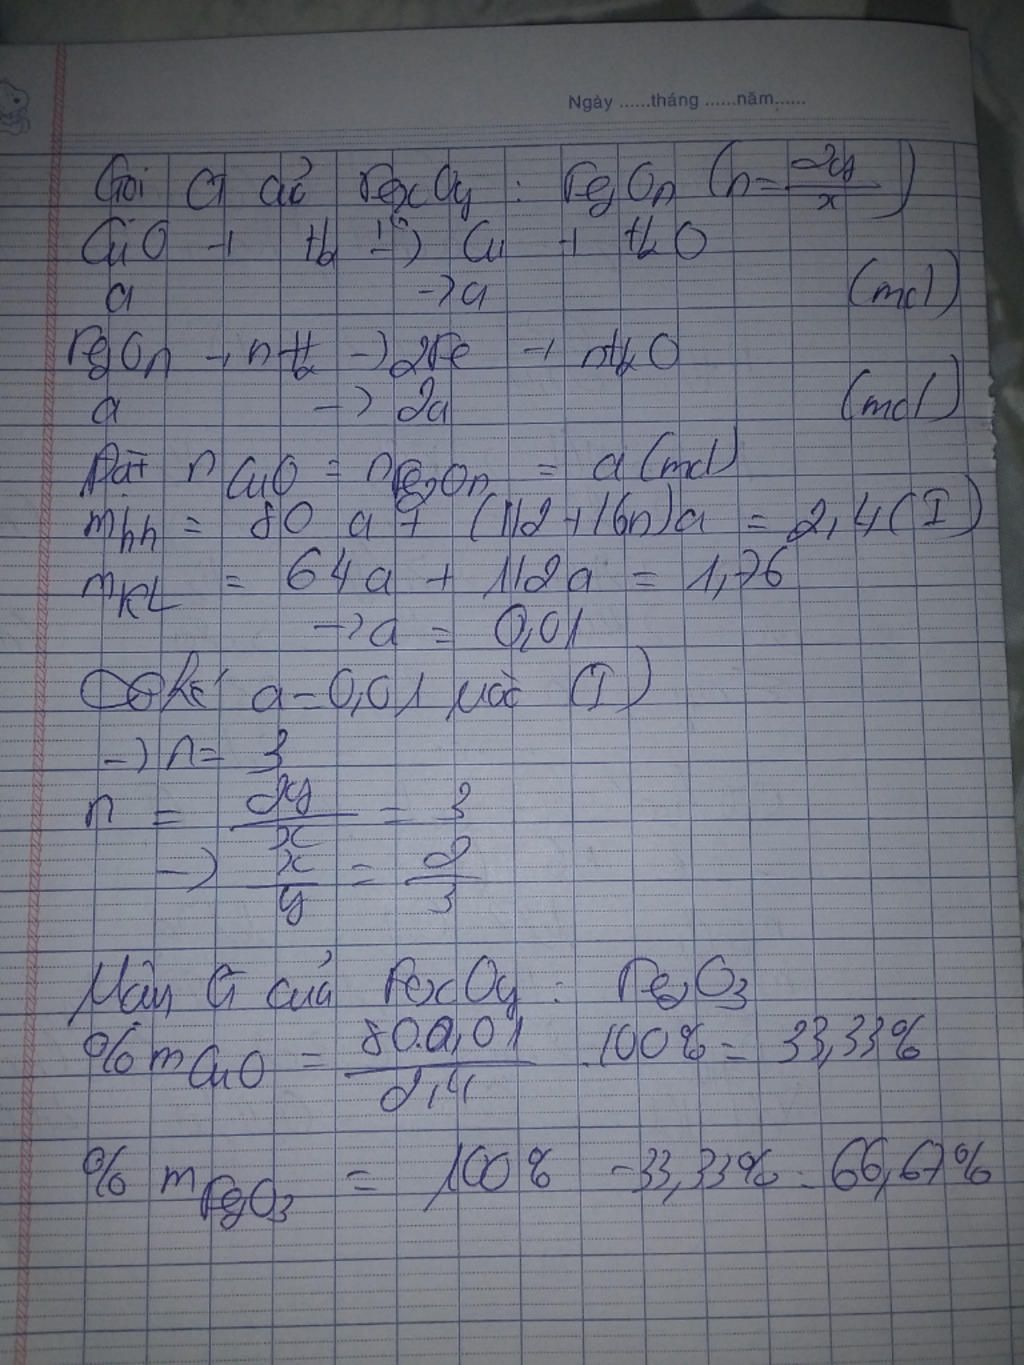 Ngày ......tháng ......năm......
Gọi CT của FexOy : Fe2On (n = 2y/x)
CuO + H2 t°→ Cu + H2O
a → a (mol)
Fe2On + nH2 → 2Fe + nH2O
a → 2a (mol)
Đặt nCuO = nFe2On = a (mol)
mhh = 80a + (112+16n)a = 2,4 (I)
mKL = 64a + 112a = 1,76
→ a = 0,01
Có a = 0,01 vào (I)
→ n = 3
n = 2y/x = 3
→ x/y = 2/3
Vậy CT của FexOy : Fe2O3
% mCuO = 80.0,01/2,4 . 100% = 33,33%
% mFe2O3 = 100% - 33,33% = 66,67%